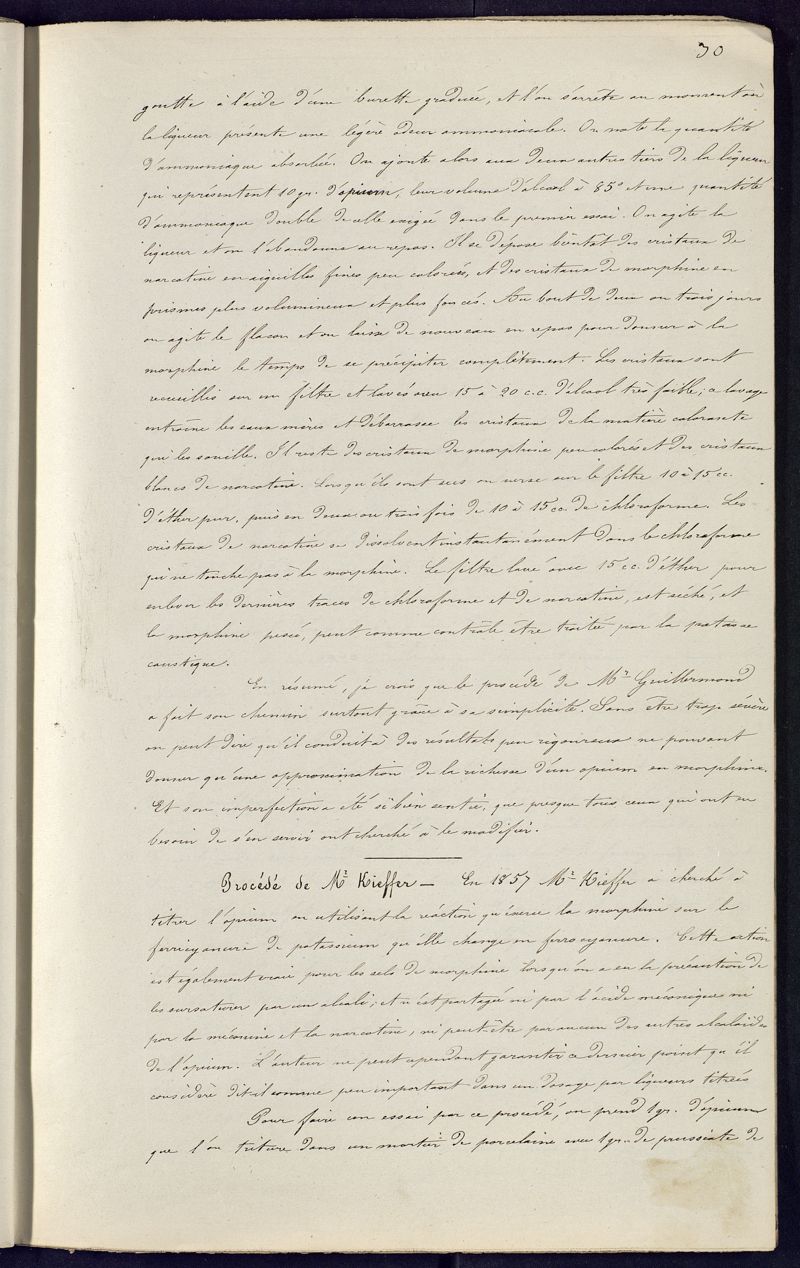 30
goutte à l'aide d'une burette graduée, et l'on s'arrête au moment où
la liqueur présente une légère odeur ammoniacale. On note la quantité
d'ammoniaque absorbée. On ajoute alors aux deux autres tiers de la liqueur
qui représentent 10 gr. d'opium, leur volume d'alcool à 85° et une quantité
d'ammoniaque double de celle exigée dans le premier essai. On agite la
liqueur et on l'abandonne au repos. Il se dépose bientôt des cristaux de
narcotine en aiguilles fines peu colorées, et des cristaux de morphine en
prismes plus volumineux et plus foncés. Au bout de deux ou trois jours
on agite le flacon et on laisse de nouveau en repos pour donner à la
morphine le temps de se précipiter complètement. Les cristaux sont
recueillis sur un filtre et lavés avec 15 à 20 c.c. d'alcool très faible; ce lavage
entraîne les eaux mères et débarrasse les cristaux de la matière colorante
qui les souille. Il reste des cristaux de morphine peu colorés et des cristaux
blancs de narcotine. Lorsqu'ils sont secs on verse sur le filtre 10 à 15 cc.
d'éther pur, puis en deux ou trois fois de 10 à 15 cc. de chloroforme. Les
cristaux de narcotine se dissolvent instantanément dans le chloroforme
qui ne touche pas à la morphine. Le filtre lavé avec 15 c.c. d'éther pour
enlever les dernières traces de chloroforme et de narcotine, est séché, et
la morphine pesée, peut comme contrôle être traitée par la potasse
caustique.
En résumé, je crois que le procédé de Mr. Guillermond
a fait son chemin surtout grâce à sa simplicité. Sans être trop sévère
on peut dire qu'il conduit à des résultats peu rigoureux ne pouvant
donner qu'une approximation de la richesse d'un opium en morphine.
Et son imperfection a été si bien sentie, que presque tous ceux qui ont eu
besoin de s'en servir ont cherché à le modifier.
Procédé de Mr. Kieffer — En 1857 Mr. Kieffer a cherché à
titrer l'opium en utilisant la réaction qu'exerce la morphine sur le
ferricyanure de potassium qu'elle change en ferrocyanure. Cette action
est également vraie pour les sels de morphine lorsqu'on a eu la précaution de
les sursaturer par un alcali; et n'est partagée ni par l'acide méconique ni
par la méconine et la narcotine, ni peut-être par aucun des autres alcaloïdes
de l'opium. L'auteur ne peut cependant garantir ce dernier point qu'il
considère dit-il comme peu important dans un dosage par liqueurs titrées
Pour faire un essai par ce procédé, on prend 1 gr. d'opium
que l'on triture dans un mortier de porcelaine avec 1 gr. de prussiate de